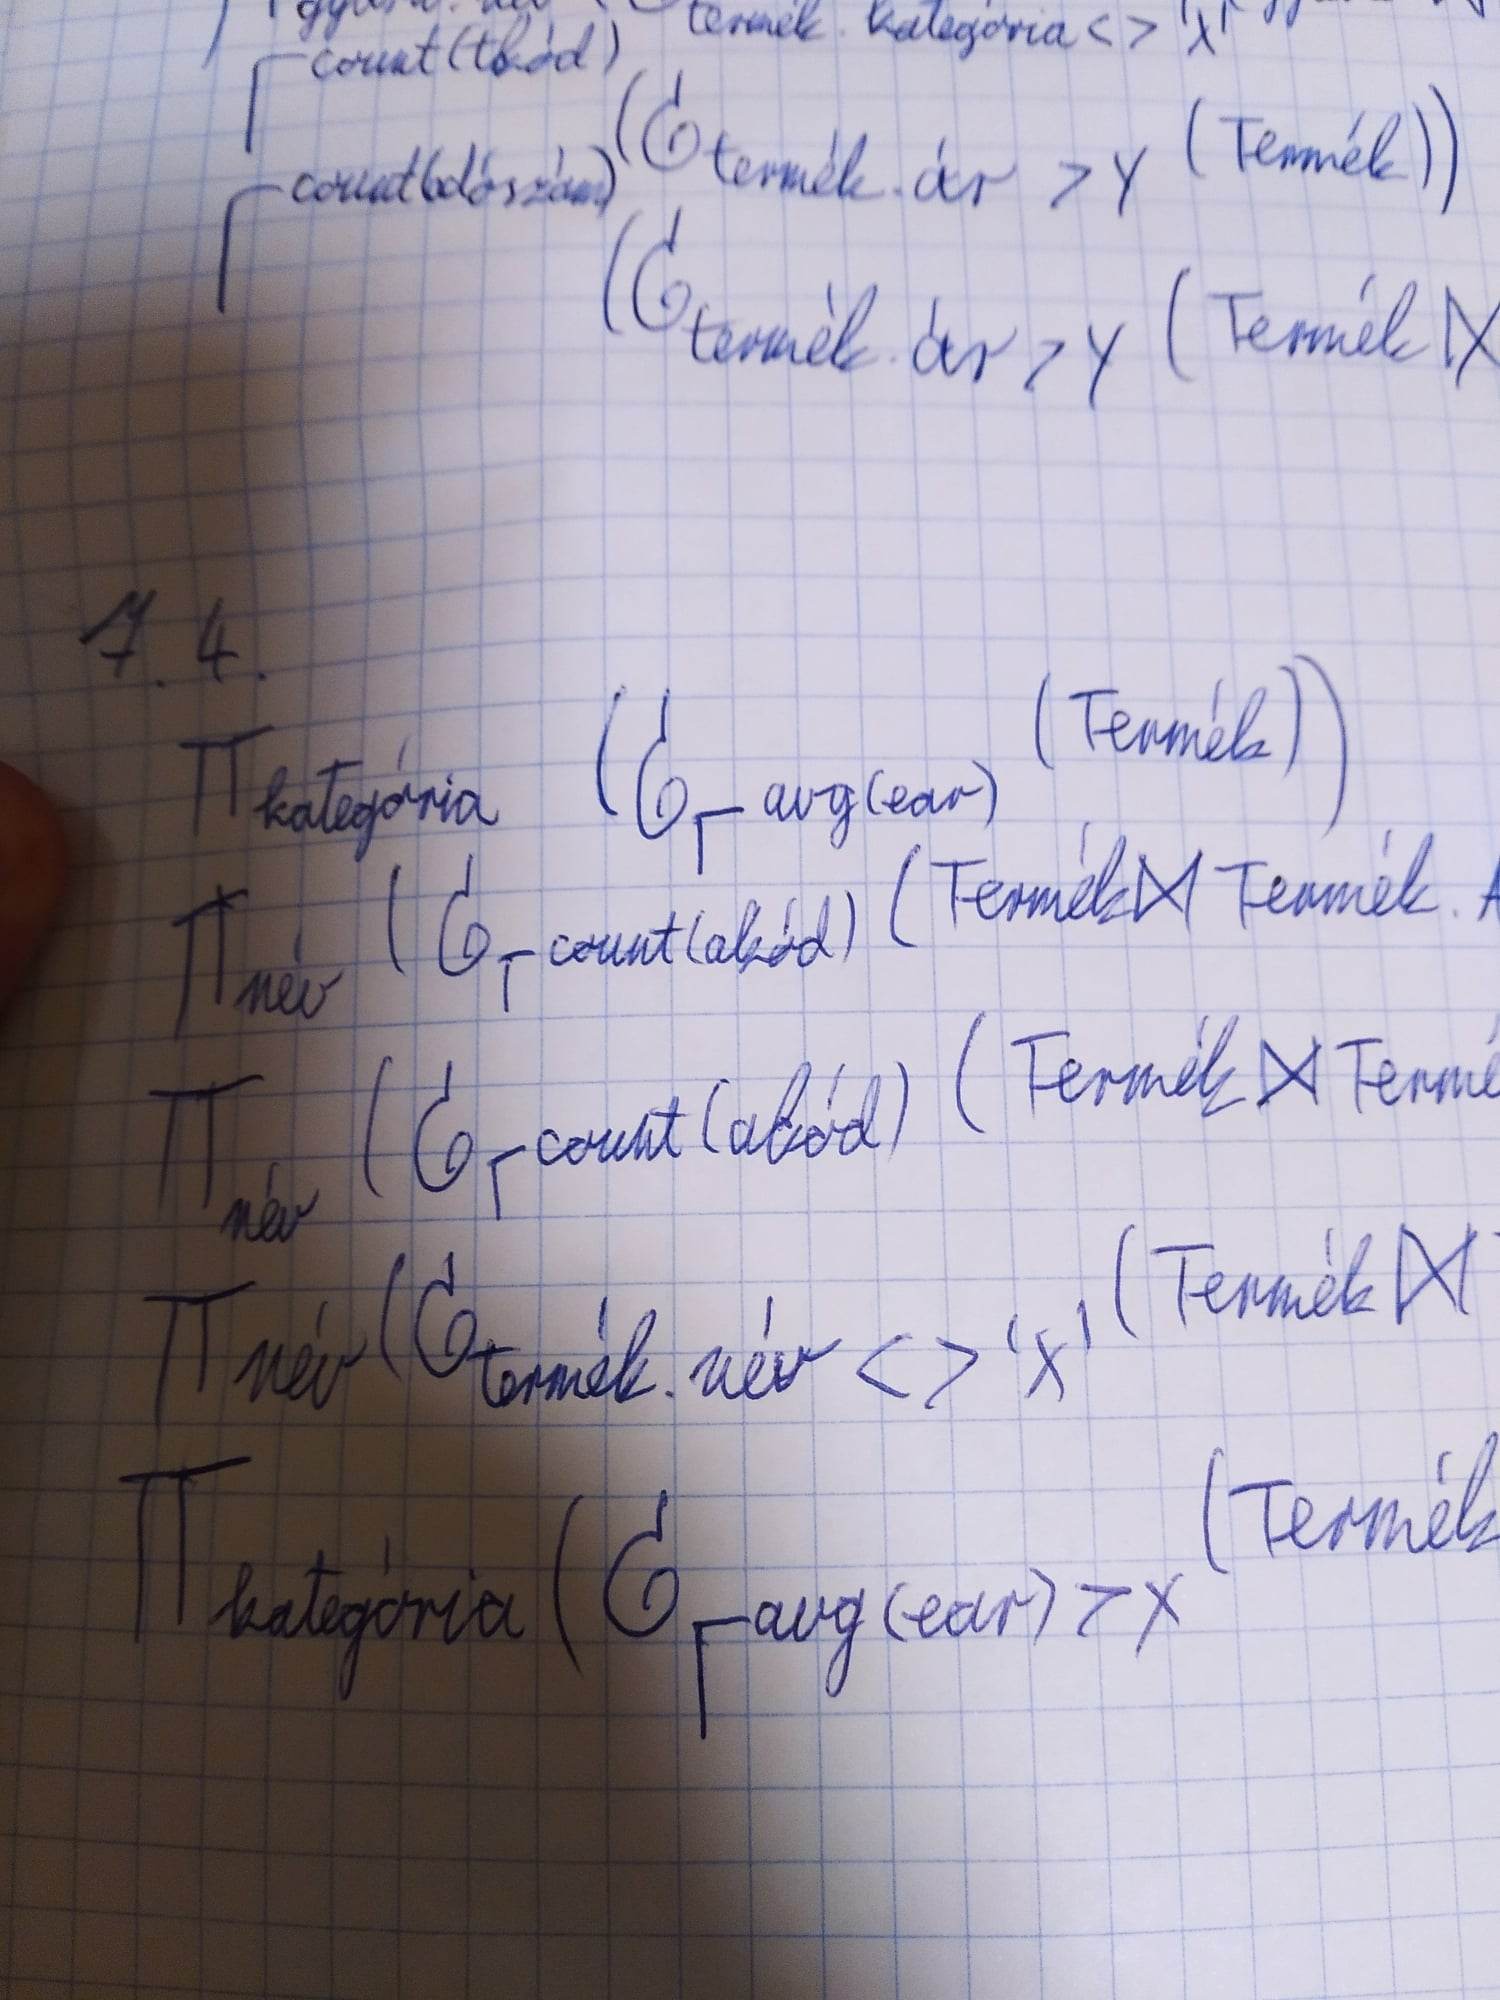 termék.kategória <> 'x'
Γ count(tkód) (σ termék.ár > y (Termék))
Γ count(adószám) (σ termék.ár > y (Termék ⋈
7.4.
π kategória (σ Γ avg(ear) (Termék))
π név (σ Γ count(akód) (Termék ⋈ Termék. A
π név (σ Γ count(akód) (Termék ⋈ Termé
π név (σ termék.név <> 'x' (Termék ⋈
π kategória (σ Γ avg(ear) > x (Termék